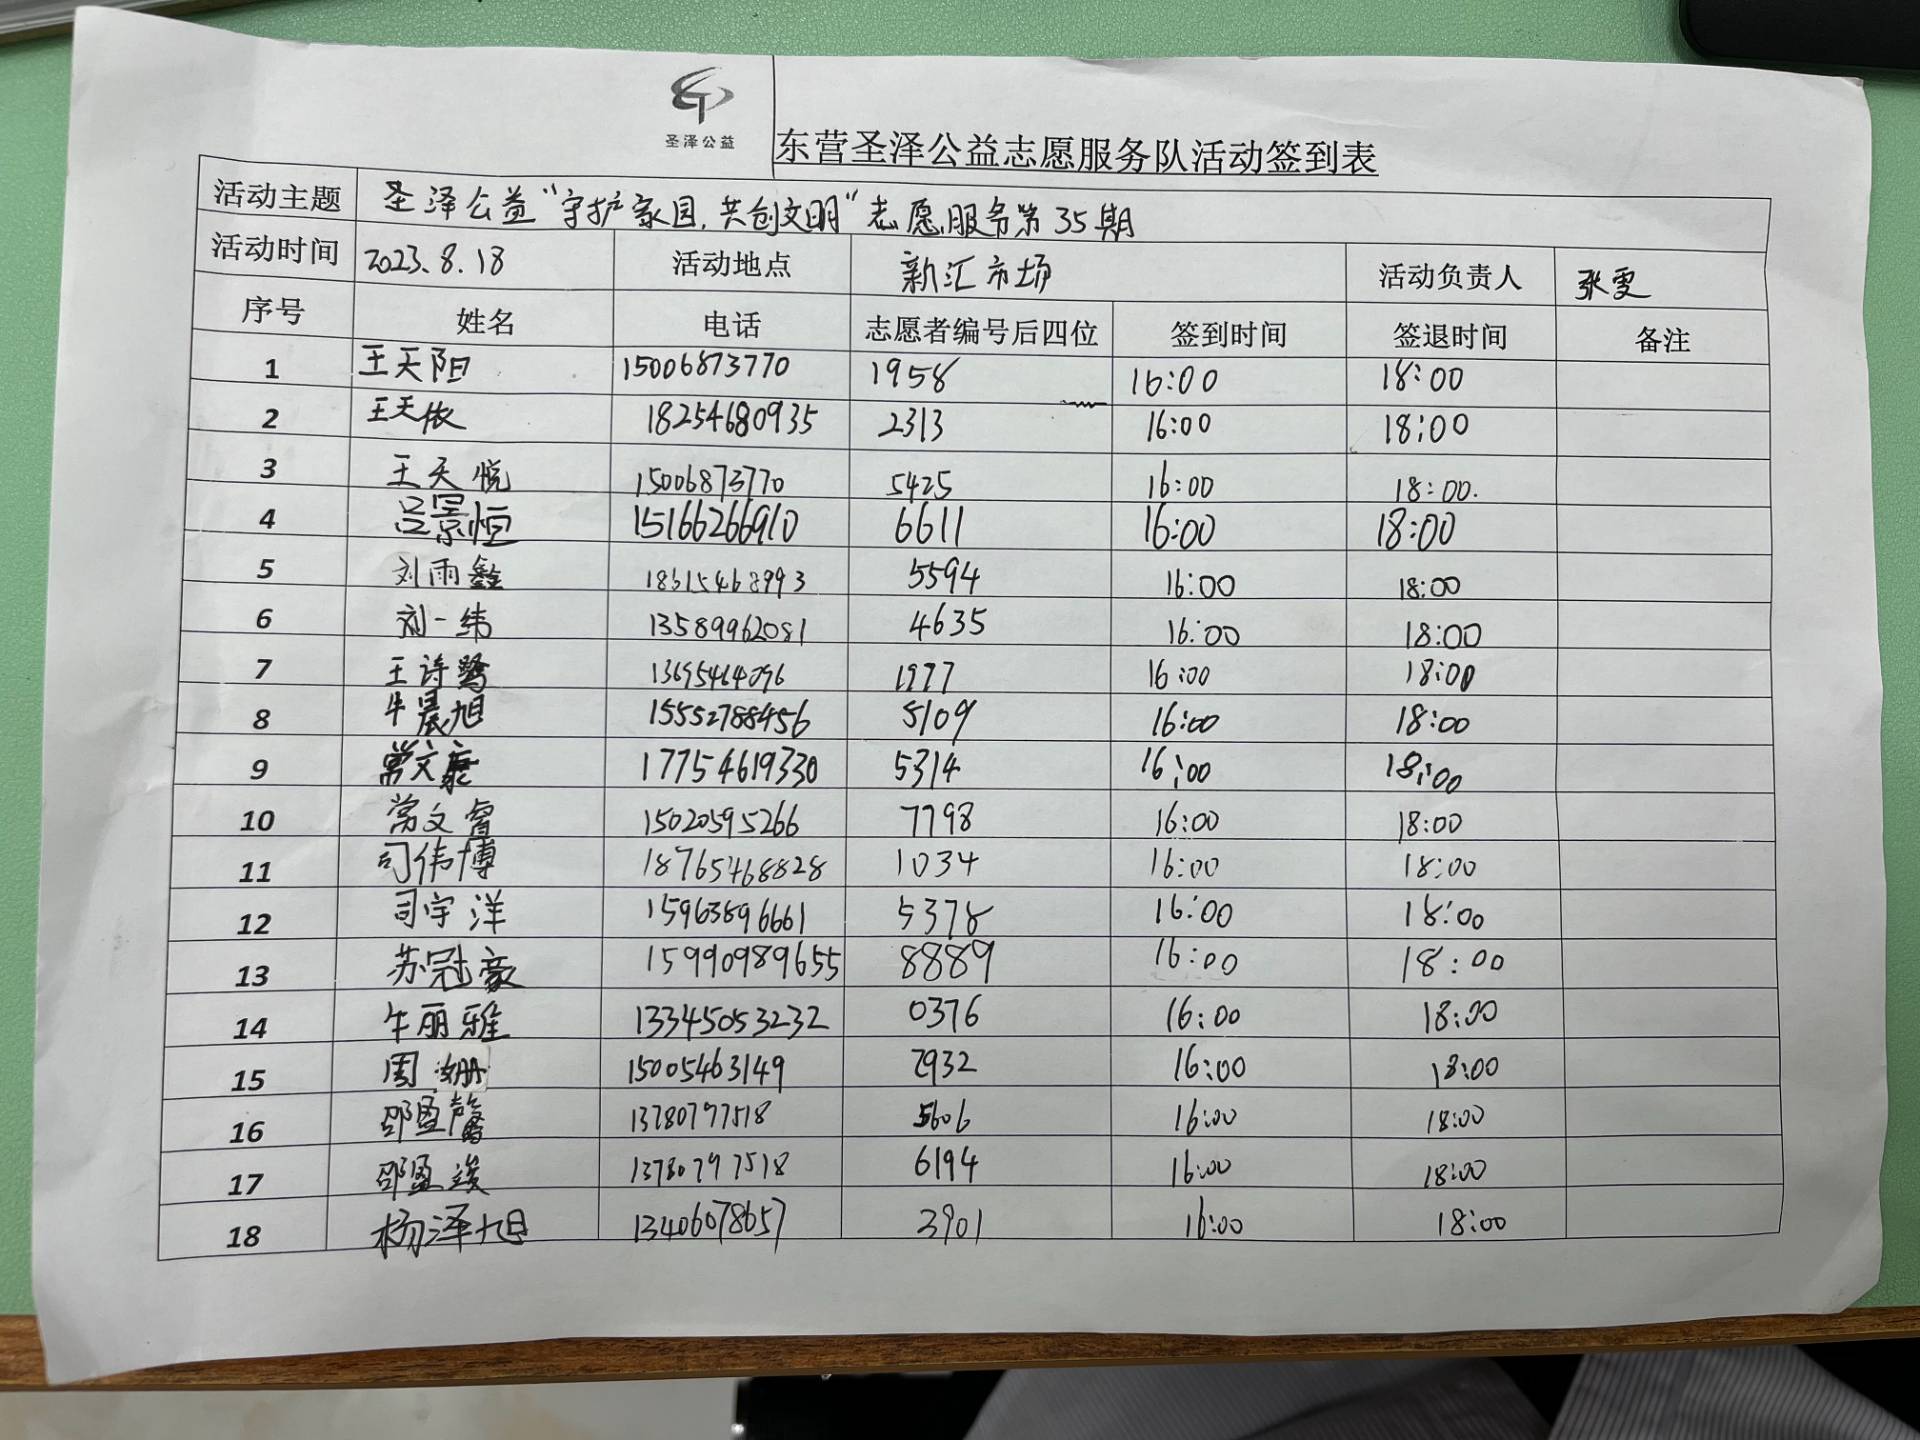 圣泽公益
东营圣泽公益志愿服务队活动签到表
活动主题 圣泽公益“守护家园,共创文明”志愿服务第35期
活动时间 2023.8.18 活动地点 新汇市场 活动负责人 张雯
序号 姓名 电话 志愿者编号后四位 签到时间 签退时间 备注
1 王天阳 15006873770 1958 16:00 18:00
2 王天依 18254680935 2313 16:00 18:00
3 王天悦 15006873770 5425 16:00 18:00.
4 吕景恒 15166266910 6611 16:00 18:00
5 刘雨鑫 18615468993 5594 16:00 18:00
6 刘一纬 13589962081 4635 16:00 18:00
7 王诗鹭 13695464096 1977 16:00 18:00
8 牛晨旭 15552788456 5109 16:00 18:00
9 常文康 17754619330 5314 16:00 18:00
10 常文睿 15020595266 7798 16:00 18:00
11 司伟博 18765468828 1034 16:00 18:00
12 司宇洋 15963896661 5378 16:00 18:00
13 苏冠豪 15990989655 8889 16:00 18:00
14 牛丽雅 13345053232 0376 16:00 18:00
15 周姗 15005463149 2932 16:00 18:00
16 邵盈馨 13780797518 5606 16:00 18:00
17 邵盈竣 13780797518 6194 16:00 18:00
18 杨泽旭 13406078657 3901 16:00 18:00